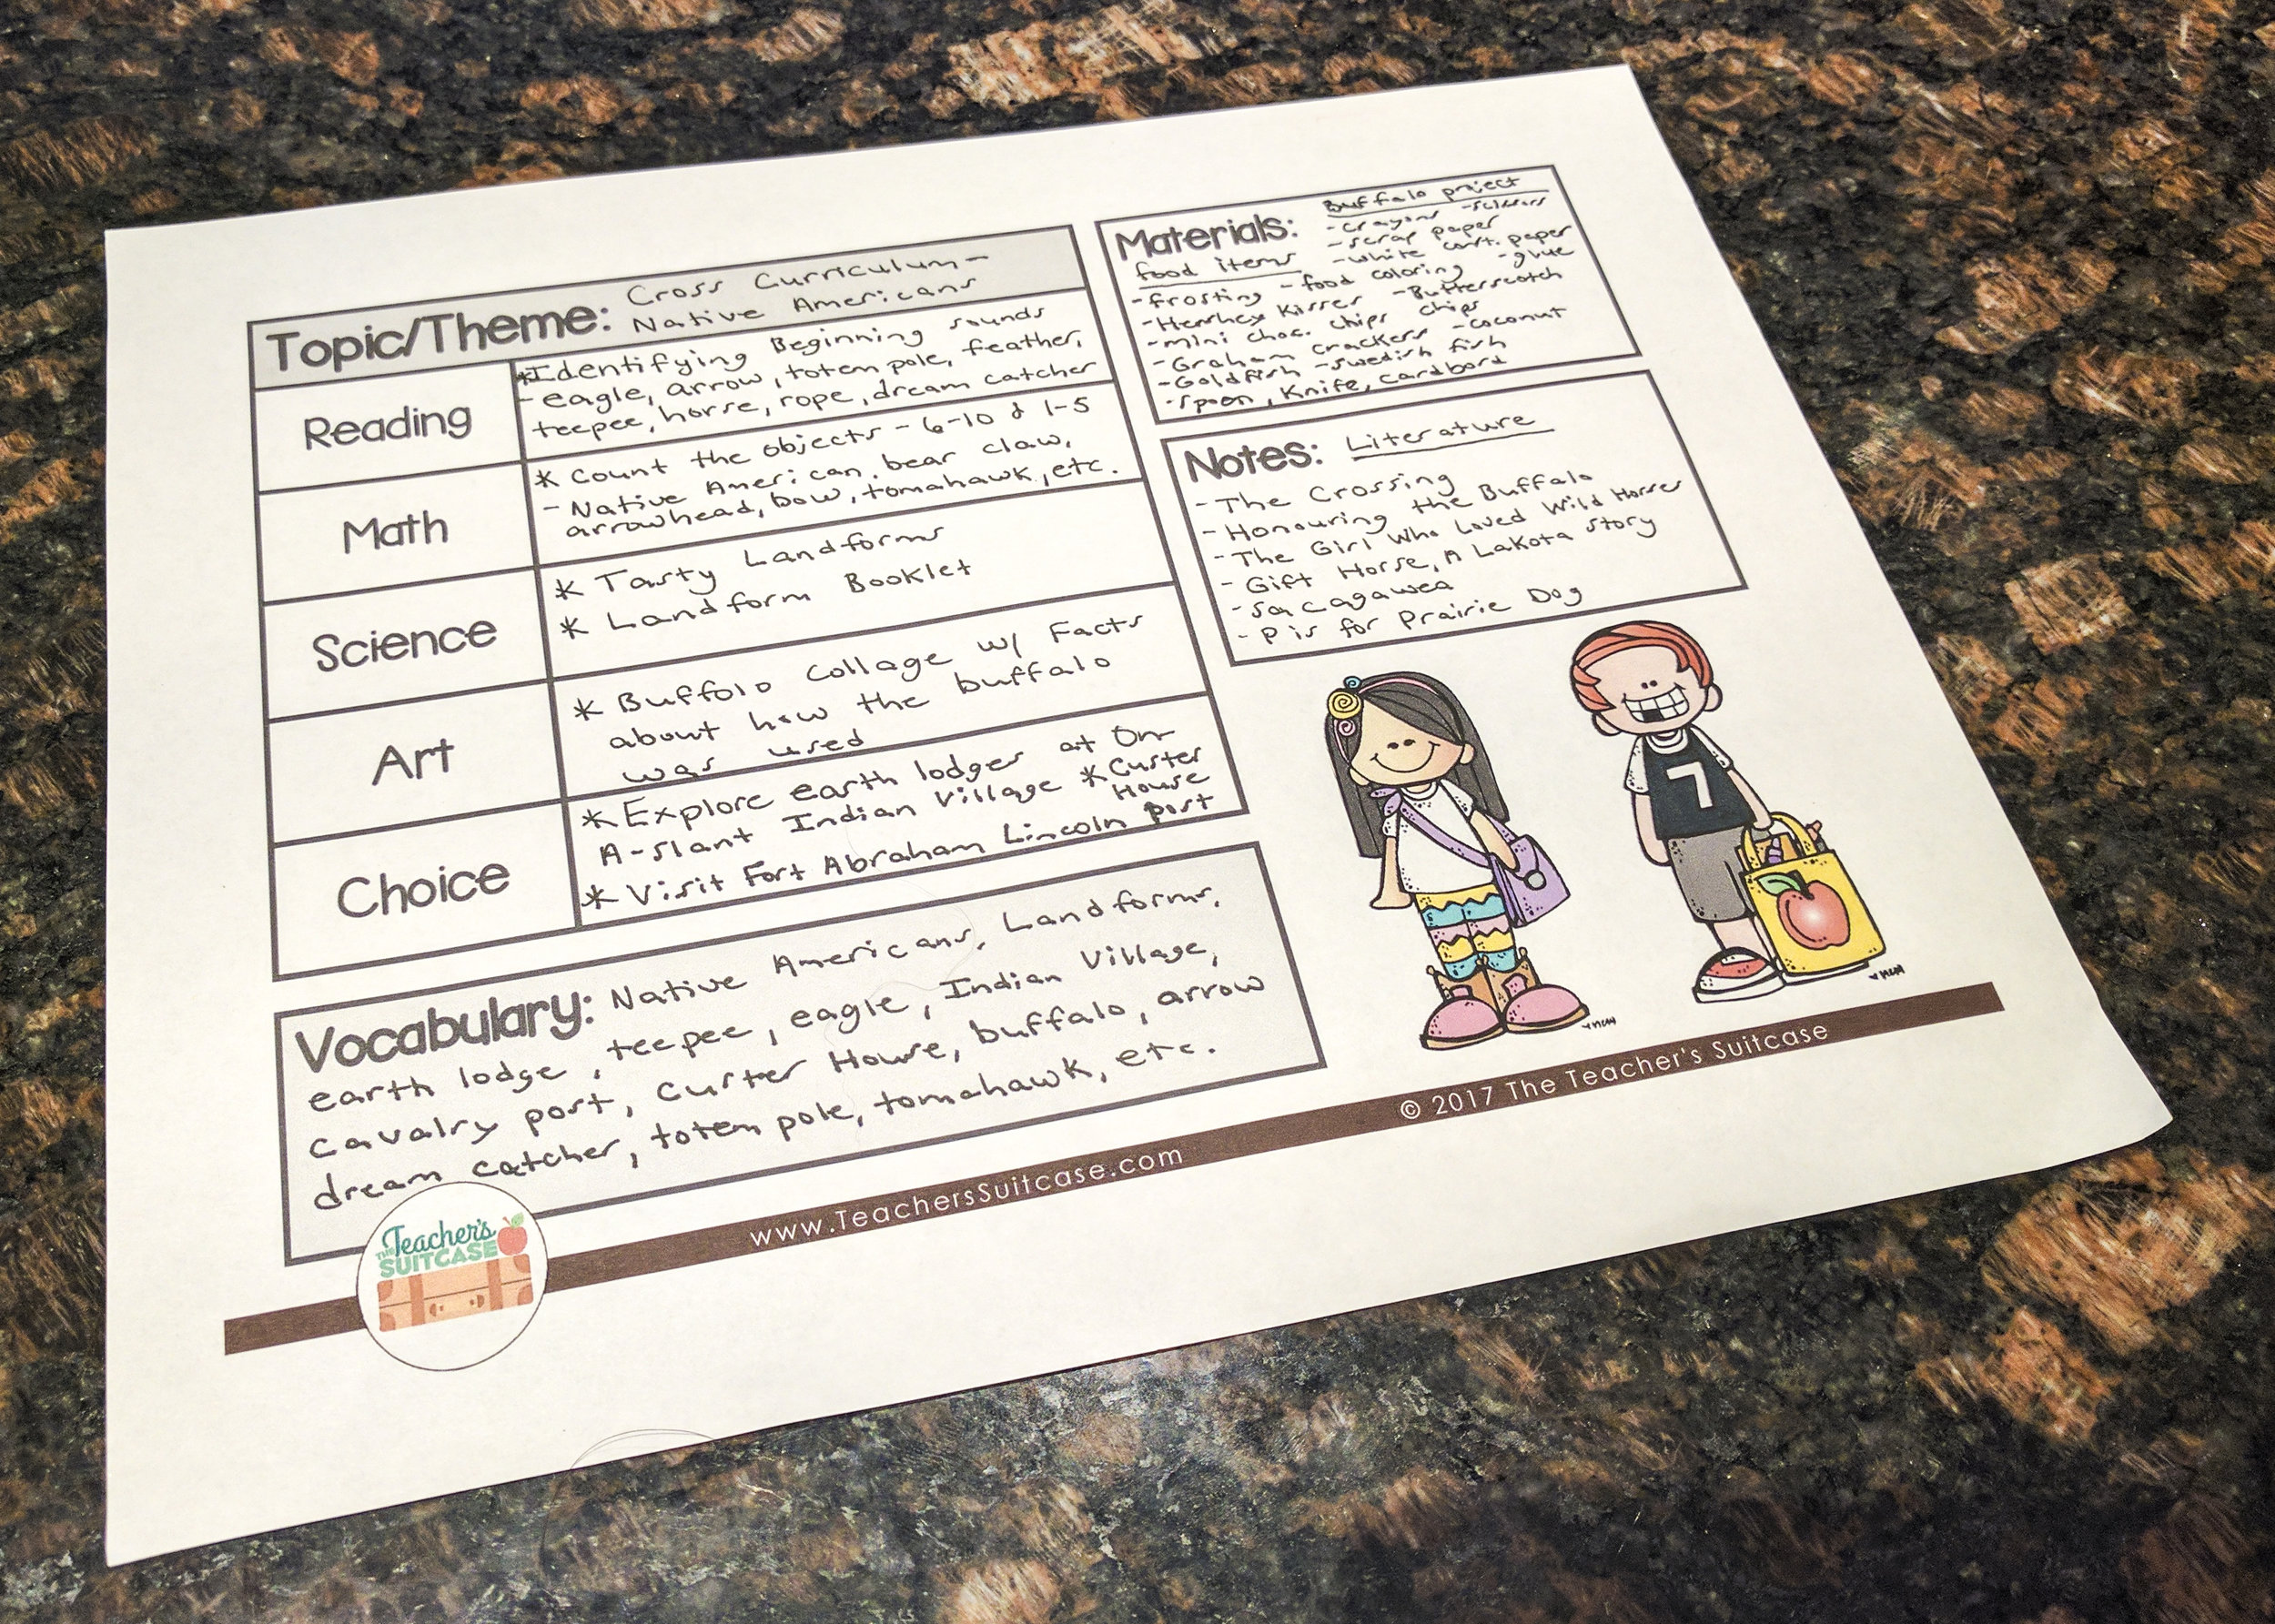 Topic/Theme: Cross Curriculum-
Native Americans
Reading
*Identifying Beginning sounds
- eagle, arrow, totem pole, feather,
teepee, horse, rope, dream catcher
Math
* Count the objects - 6-10 & 1-5
- Native American, bear claw,
arrowhead, bow, tomahawk, etc.
Science
* Tasty Landforms
* Landform Booklet
Art
* Buffolo Collage w/ Facts
about how the buffalo
was used
Choice
* Explore earth lodges at On-
A-Slant Indian Village * Custer
House
* Visit Fort Abraham Lincoln post
Vocabulary: Native Americans, Landforms,
earth lodge, teepee, eagle, Indian Village,
cavalry post, Custer House, buffalo, arrow
dream catcher, totem pole, tomahawk, etc.
Materials: Buffalo project
- crayons - scissors
- scrap paper
- white const. paper
- glue
food items
- frosting - food coloring
- Hershey Kisses - Butterscotch
chips
- mini choc. chips
- Graham crackers - coconut
- Goldfish - swedish fish
- Spoon, Knife, cardbord
Notes: Literature
- The Crossing
- Honouring the Buffalo
- The Girl Who Loved Wild Horses
- Gift Horse, A Lakota Story
- Sacagawea
- P is for Prairie Dog
7
The Teacher's
SUITCASE
www.TeachersSuitcase.com
© 2017 The Teacher's Suitcase